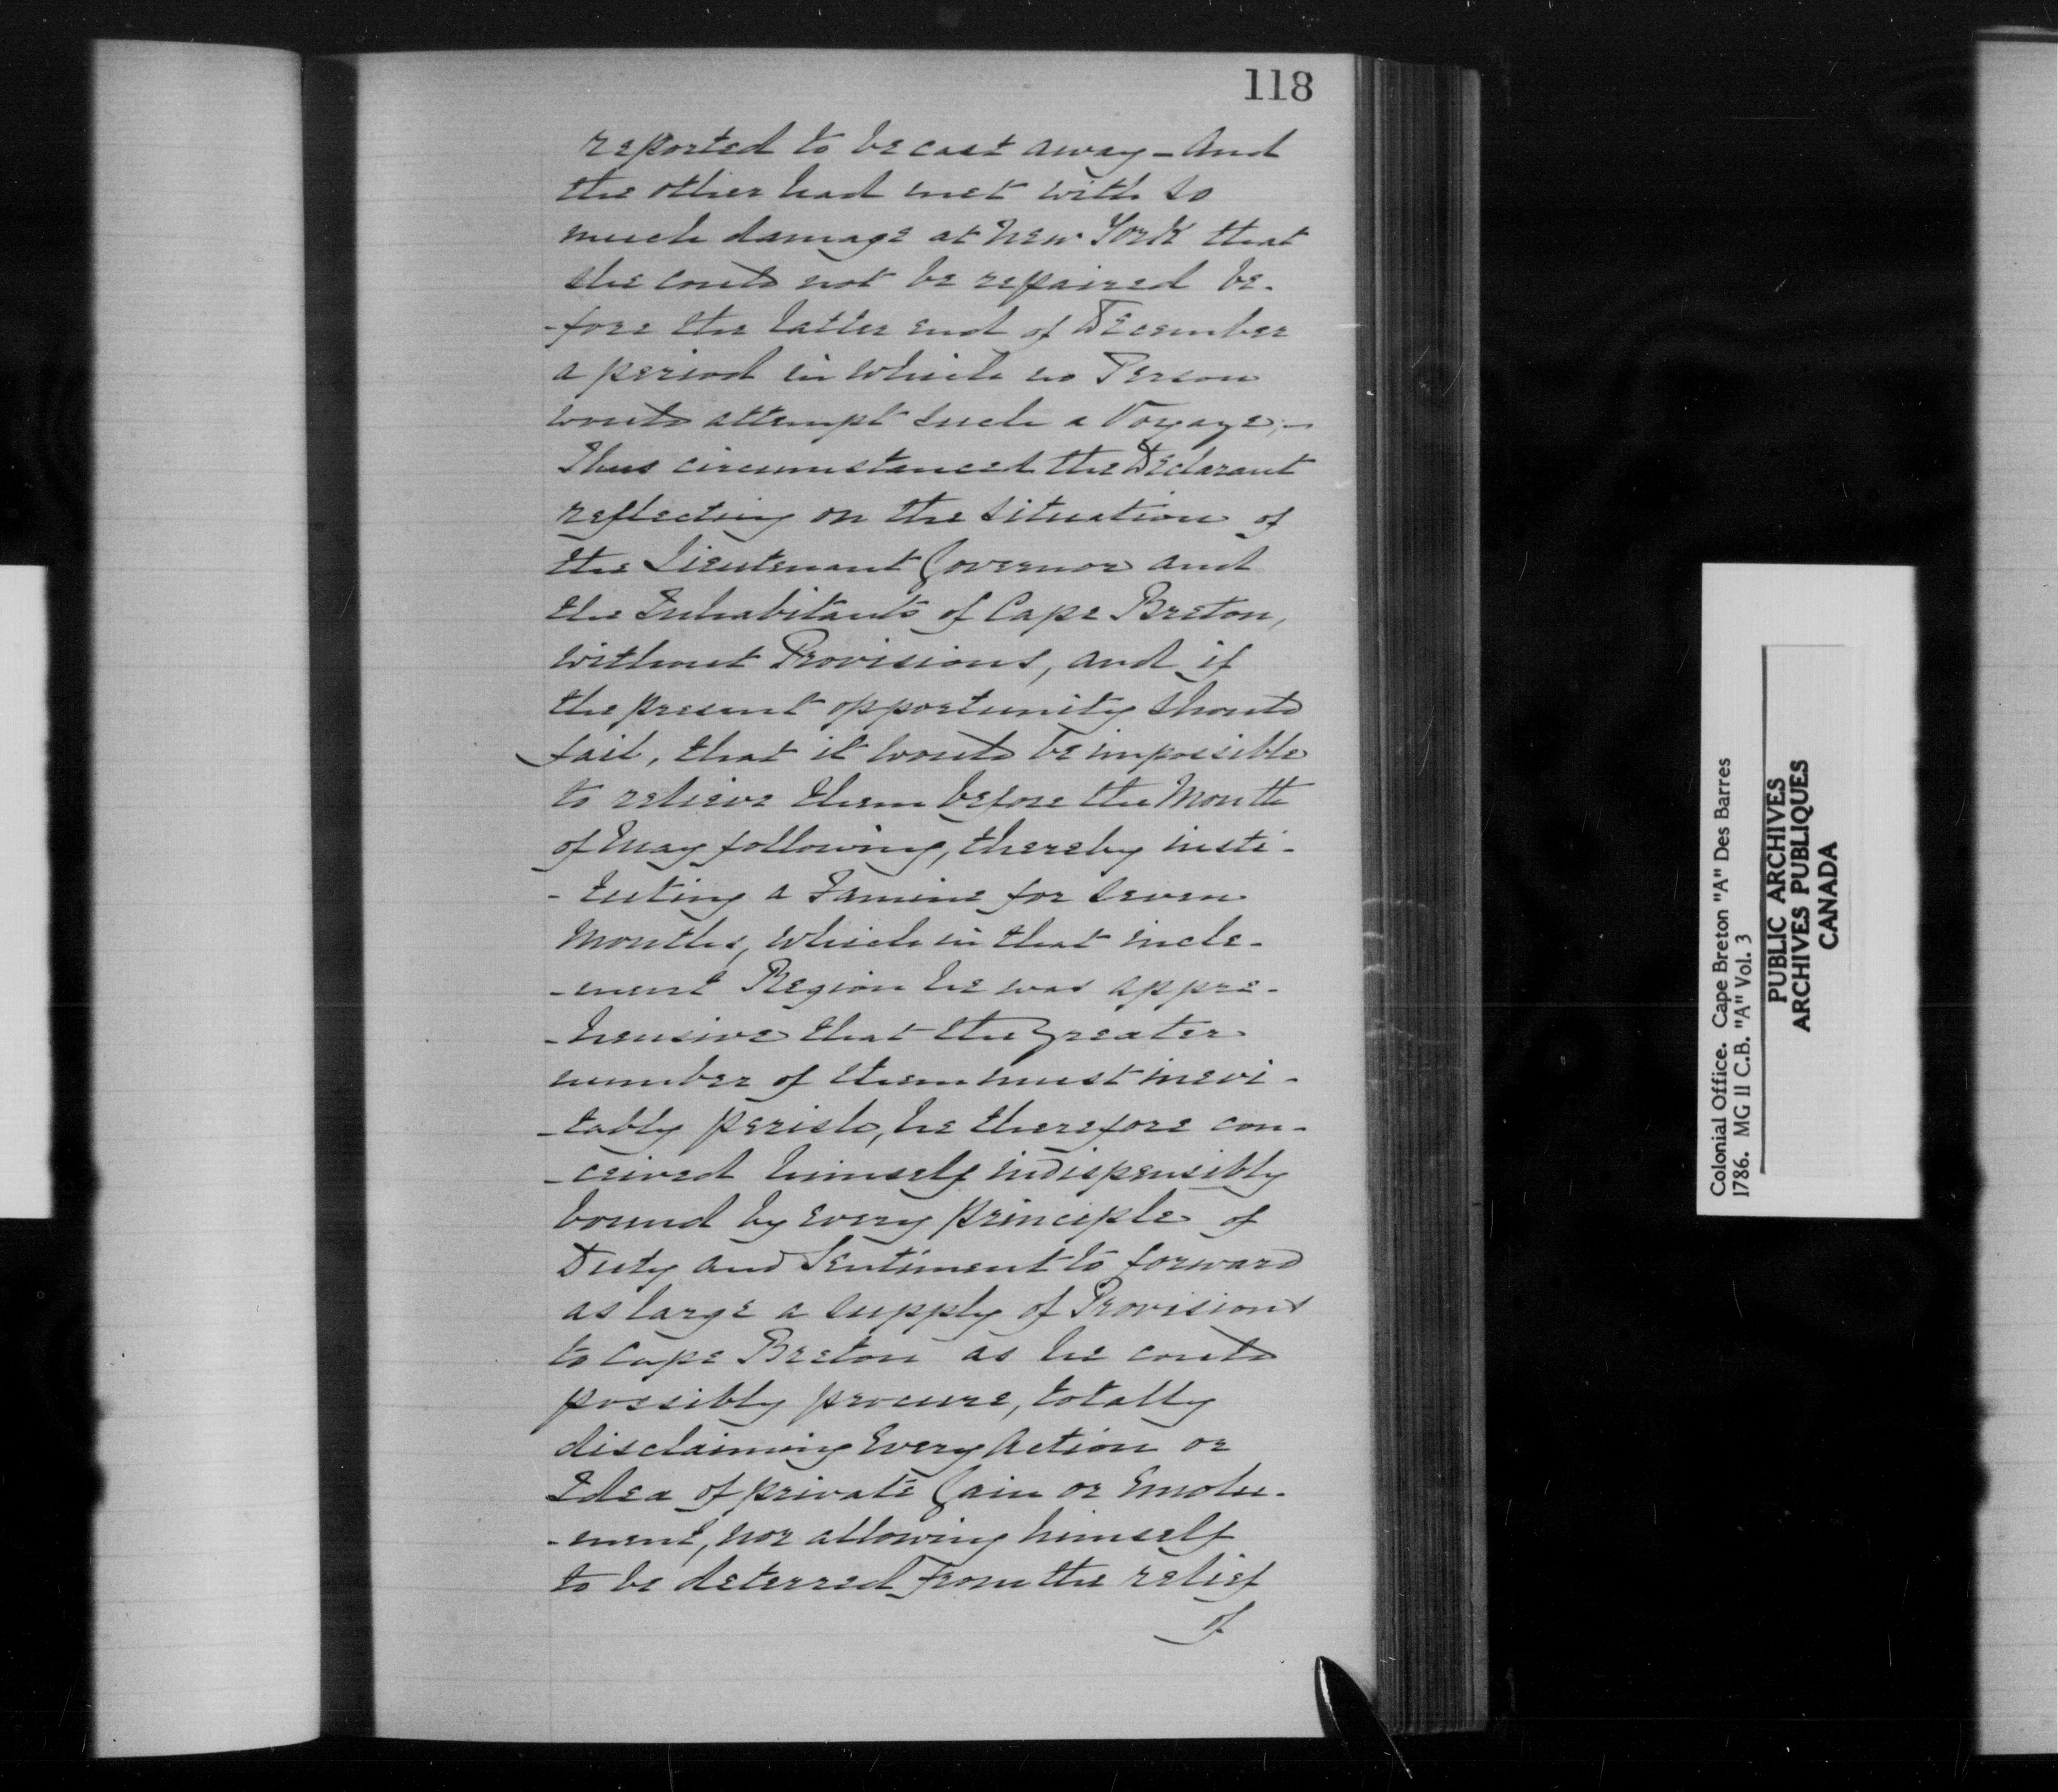 118
reported to be cast away - And
the other had met with so
much damage at New York that
she could not be repaired be-
-fore the latter end of December
a period in which no Person
would attempt such a Voyage;-
Thus circumstanced the Declarant
reflecting on the situation of
the Lieutenant Governor and
the Inhabitants of Cape Breton,
without Provisions, and if
the present opportunity should
fail, that it would be impossible
to relieve them before the Month
of May following, thereby insti-
-tuting a Famine for seven
Months, which in that incle-
-ment Region he was appre-
-hensive that the greater
number of them must inevi-
-tably perish, he therefore con-
-ceived himself indispensibly
bound by every principle of
Duty and Sentiment to forward
as large a supply of Provisions
to Cape Breton as he could
possibly procure, totally
disclaiming Every Action or
Idea of private Gain or Emolu-
-ment, nor allowing himself
to be deterred from the relief
of
Colonial Office. Cape Breton "A" Des Barres
1786. MG 11 C.B. "A" Vol. 3
PUBLIC ARCHIVES
ARCHIVES PUBLIQUES
CANADA